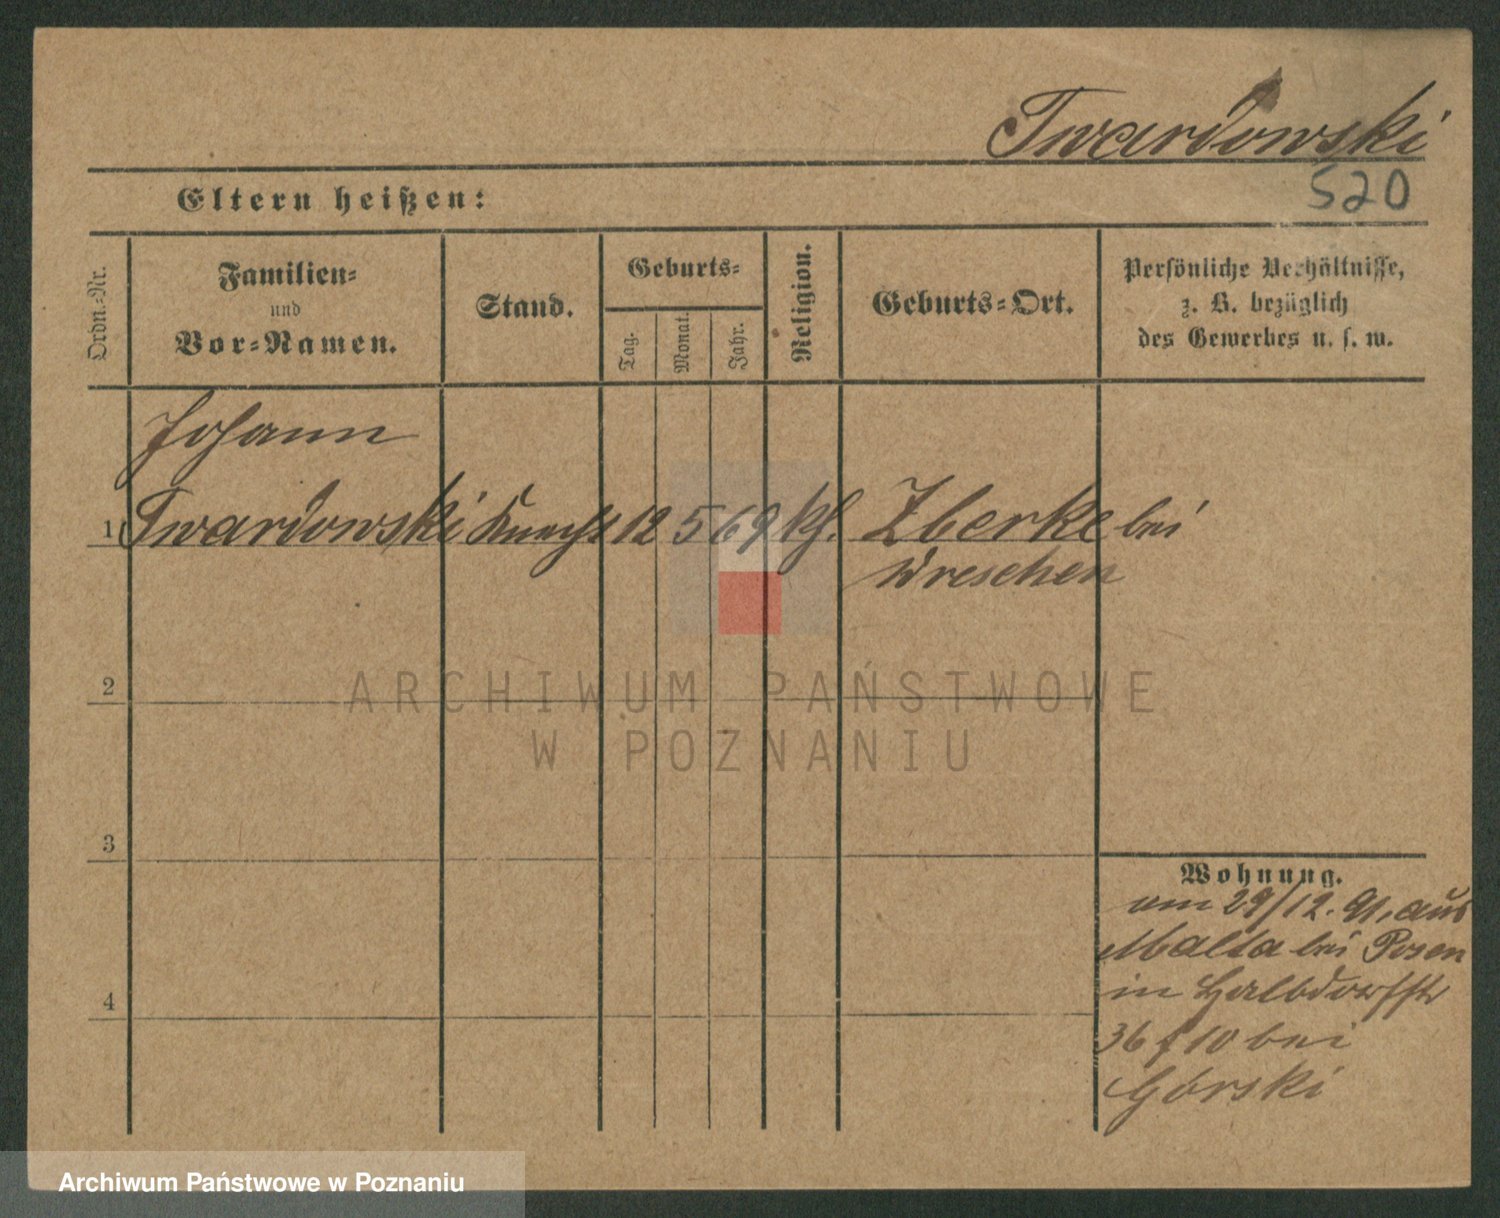 Twardowski
Eltern heißen:
520
Ordn.-Nr.
Familien-
und
Vor-Namen.
Stand.
Geburts-
Tag.
Monat.
Jahr.
Religion.
Geburts-Ort.
Persönliche Verhältnisse,
z. B. bezüglich
des Gewerbes u. s. w.
Johann
1 Twardowski Knecht 12 5 69 kth. Zberke bei
Wreschen
2
ARCHIWUM PAŃSTWOWE
W POZNANIU
3
Wohnung.
am 29/12. 91. aus
Malta bei Posen
in Halbdorfstr
36 f 10 bei
4
Górski
Archiwum Państwowe w Poznaniu